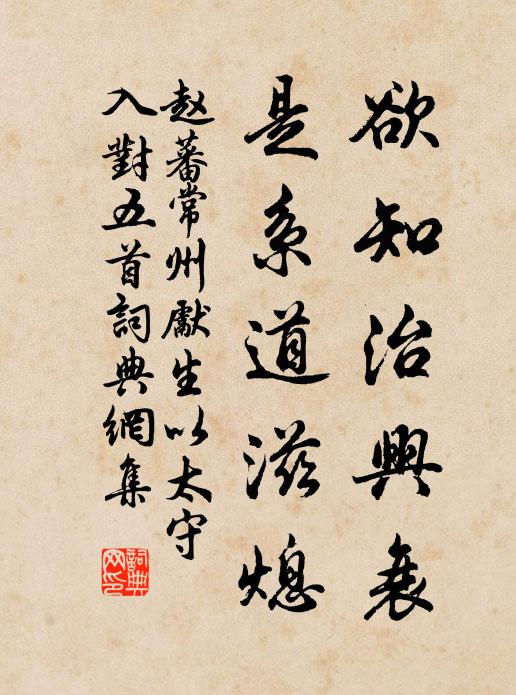 欲知治興衰
是系道滋熄
赵蕃常州獻生以太守
入對五首詞典網集
詞典网印